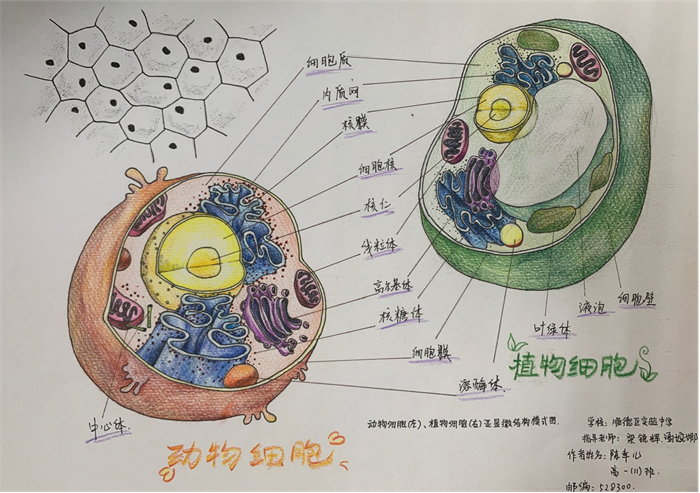 细胞质
内质网
核膜
细胞核
核仁
线粒体
高尔基体
核糖体
细胞膜
溶酶体
叶绿体
液泡
细胞壁
中心体
植物细胞
动物细胞
动物细胞(左)、植物细胞(右)亚显微结构模式图.
学校: 顺德区实验中学
指导老师: 梁锐辉
作者姓名: 陈车心
高一(11)班.
邮编: 528300.